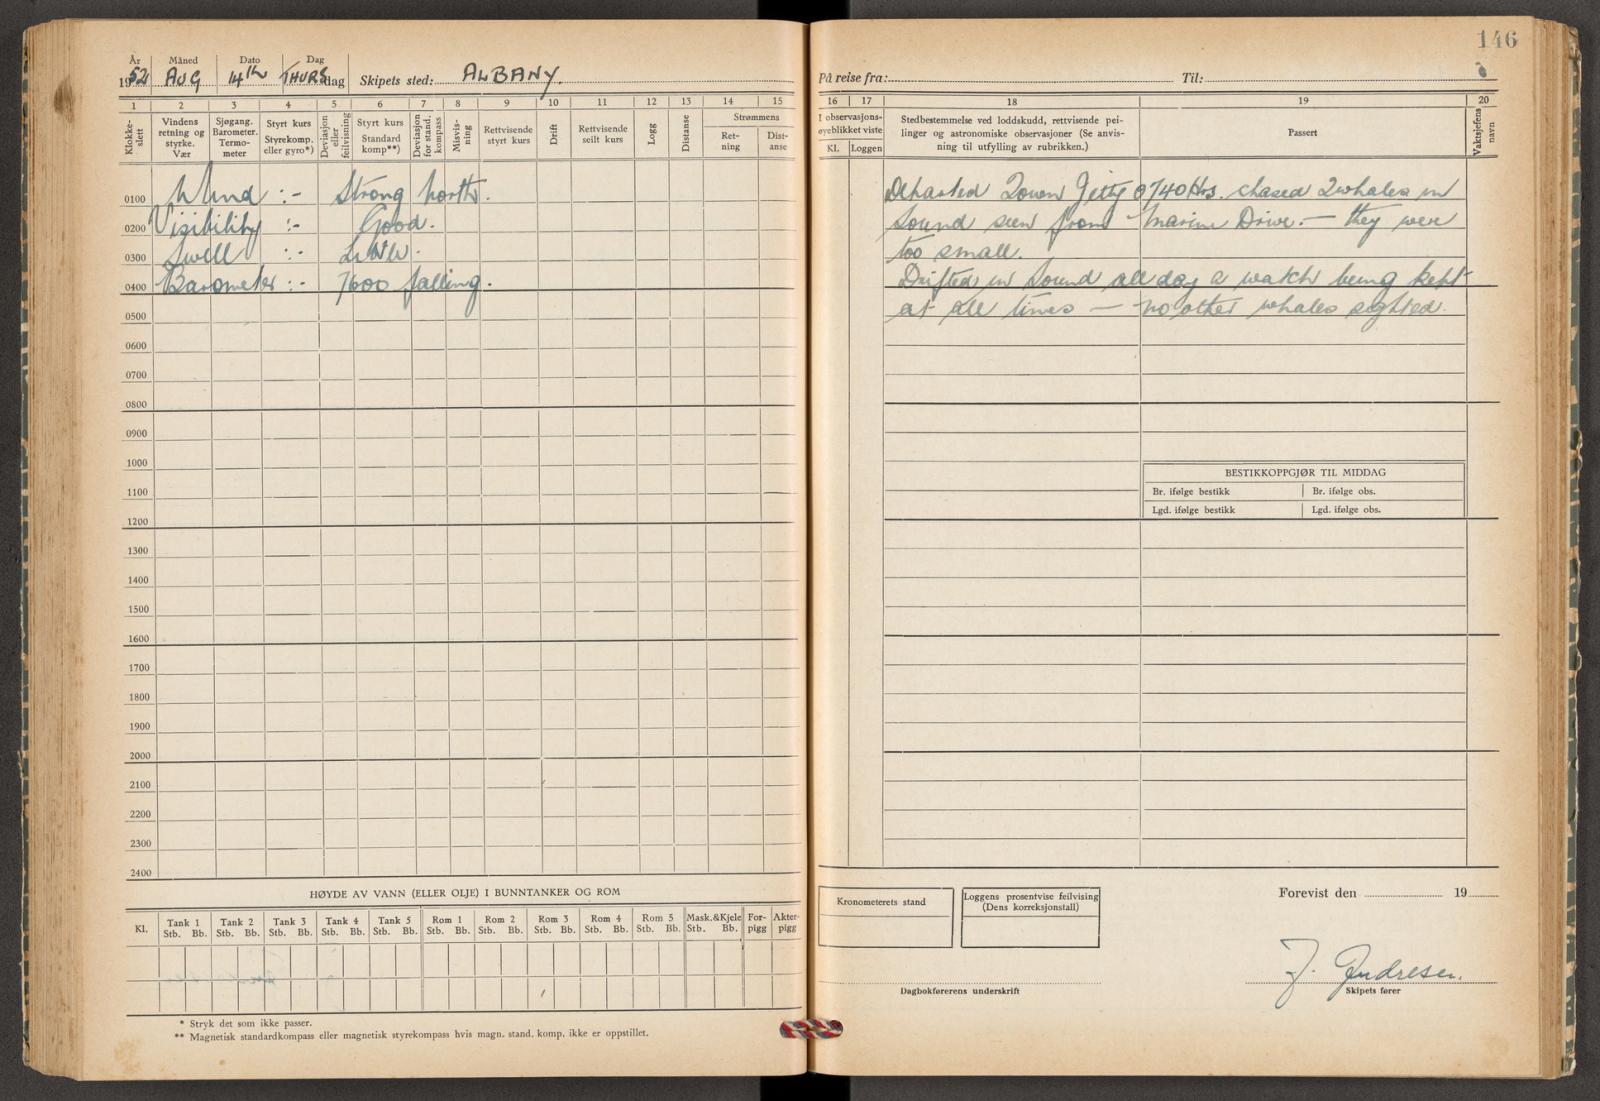 146
År Måned Dato Dag
1952 AUG 14th THURSdag Skipets sted: ALBANY.
På reise fra: Til:
1 2 3 4 5 6 7 8 9 10 11 12 13 14 15
16 17 18 19 20
Klokkeslett
Vindens retning og styrke. Vær
Sjøgang. Barometer. Termometer
Styrt kurs Styrekomp. eller gyro*)
Deviasjon eller feilvisning
Styrt kurs Standard komp**)
Deviasjon for stand. kompass
Misvisning
Rettvisende styrt kurs
Drift
Rettvisende seilt kurs
Logg
Distanse
Strømmens
Retning
Distanse
I observasjonsøyeblikket viste
Kl. Loggen
Stedbestemmelse ved loddskudd, rettvisende peilinger og astronomiske observasjoner (Se anvisning til utfylling av rubrikken.)
Passert
Vaktsjefens navn
0100 Wind :- Strong North.
0200 Visibility :- Good.
0300 Swell :- Little.
0400 Barometer :- 7600 falling.
0500
0600
0700
0800
0900
1000
1100
1200
1300
1400
1500
1600
1700
1800
1900
2000
2100
2200
2300
2400
Departed Town Jetty 0740 Hrs. chased 2 whales in
Sound seen from Marine Drive. — they were
too small.
Drifted in Sound all day a watch being kept
at all times — no other whales sighted.
BESTIKKOPPGJØR TIL MIDDAG
Br. ifølge bestikk Br. ifølge obs.
Lgd. ifølge bestikk Lgd. ifølge obs.
HØYDE AV VANN (ELLER OLJE) I BUNNTANKER OG ROM
Kl. Tank 1 Tank 2 Tank 3 Tank 4 Tank 5 Rom 1 Rom 2 Rom 3 Rom 4 Rom 5 Mask.&Kjele Forpigg Akterpigg
Stb. Bb. Stb. Bb. Stb. Bb. Stb. Bb. Stb. Bb. Stb. Bb. Stb. Bb. Stb. Bb. Stb. Bb. Stb. Bb. Stb. Bb.
* Stryk det som ikke passer.
** Magnetisk standardkompass eller magnetisk styrekompass hvis magn. stand. komp. ikke er oppstillet.
Kronometerets stand
Loggens prosentvise feilvising
(Dens korreksjonstall)
Forevist den 19
J. Andresen.
Dagbokførerens underskrift
Skipets fører